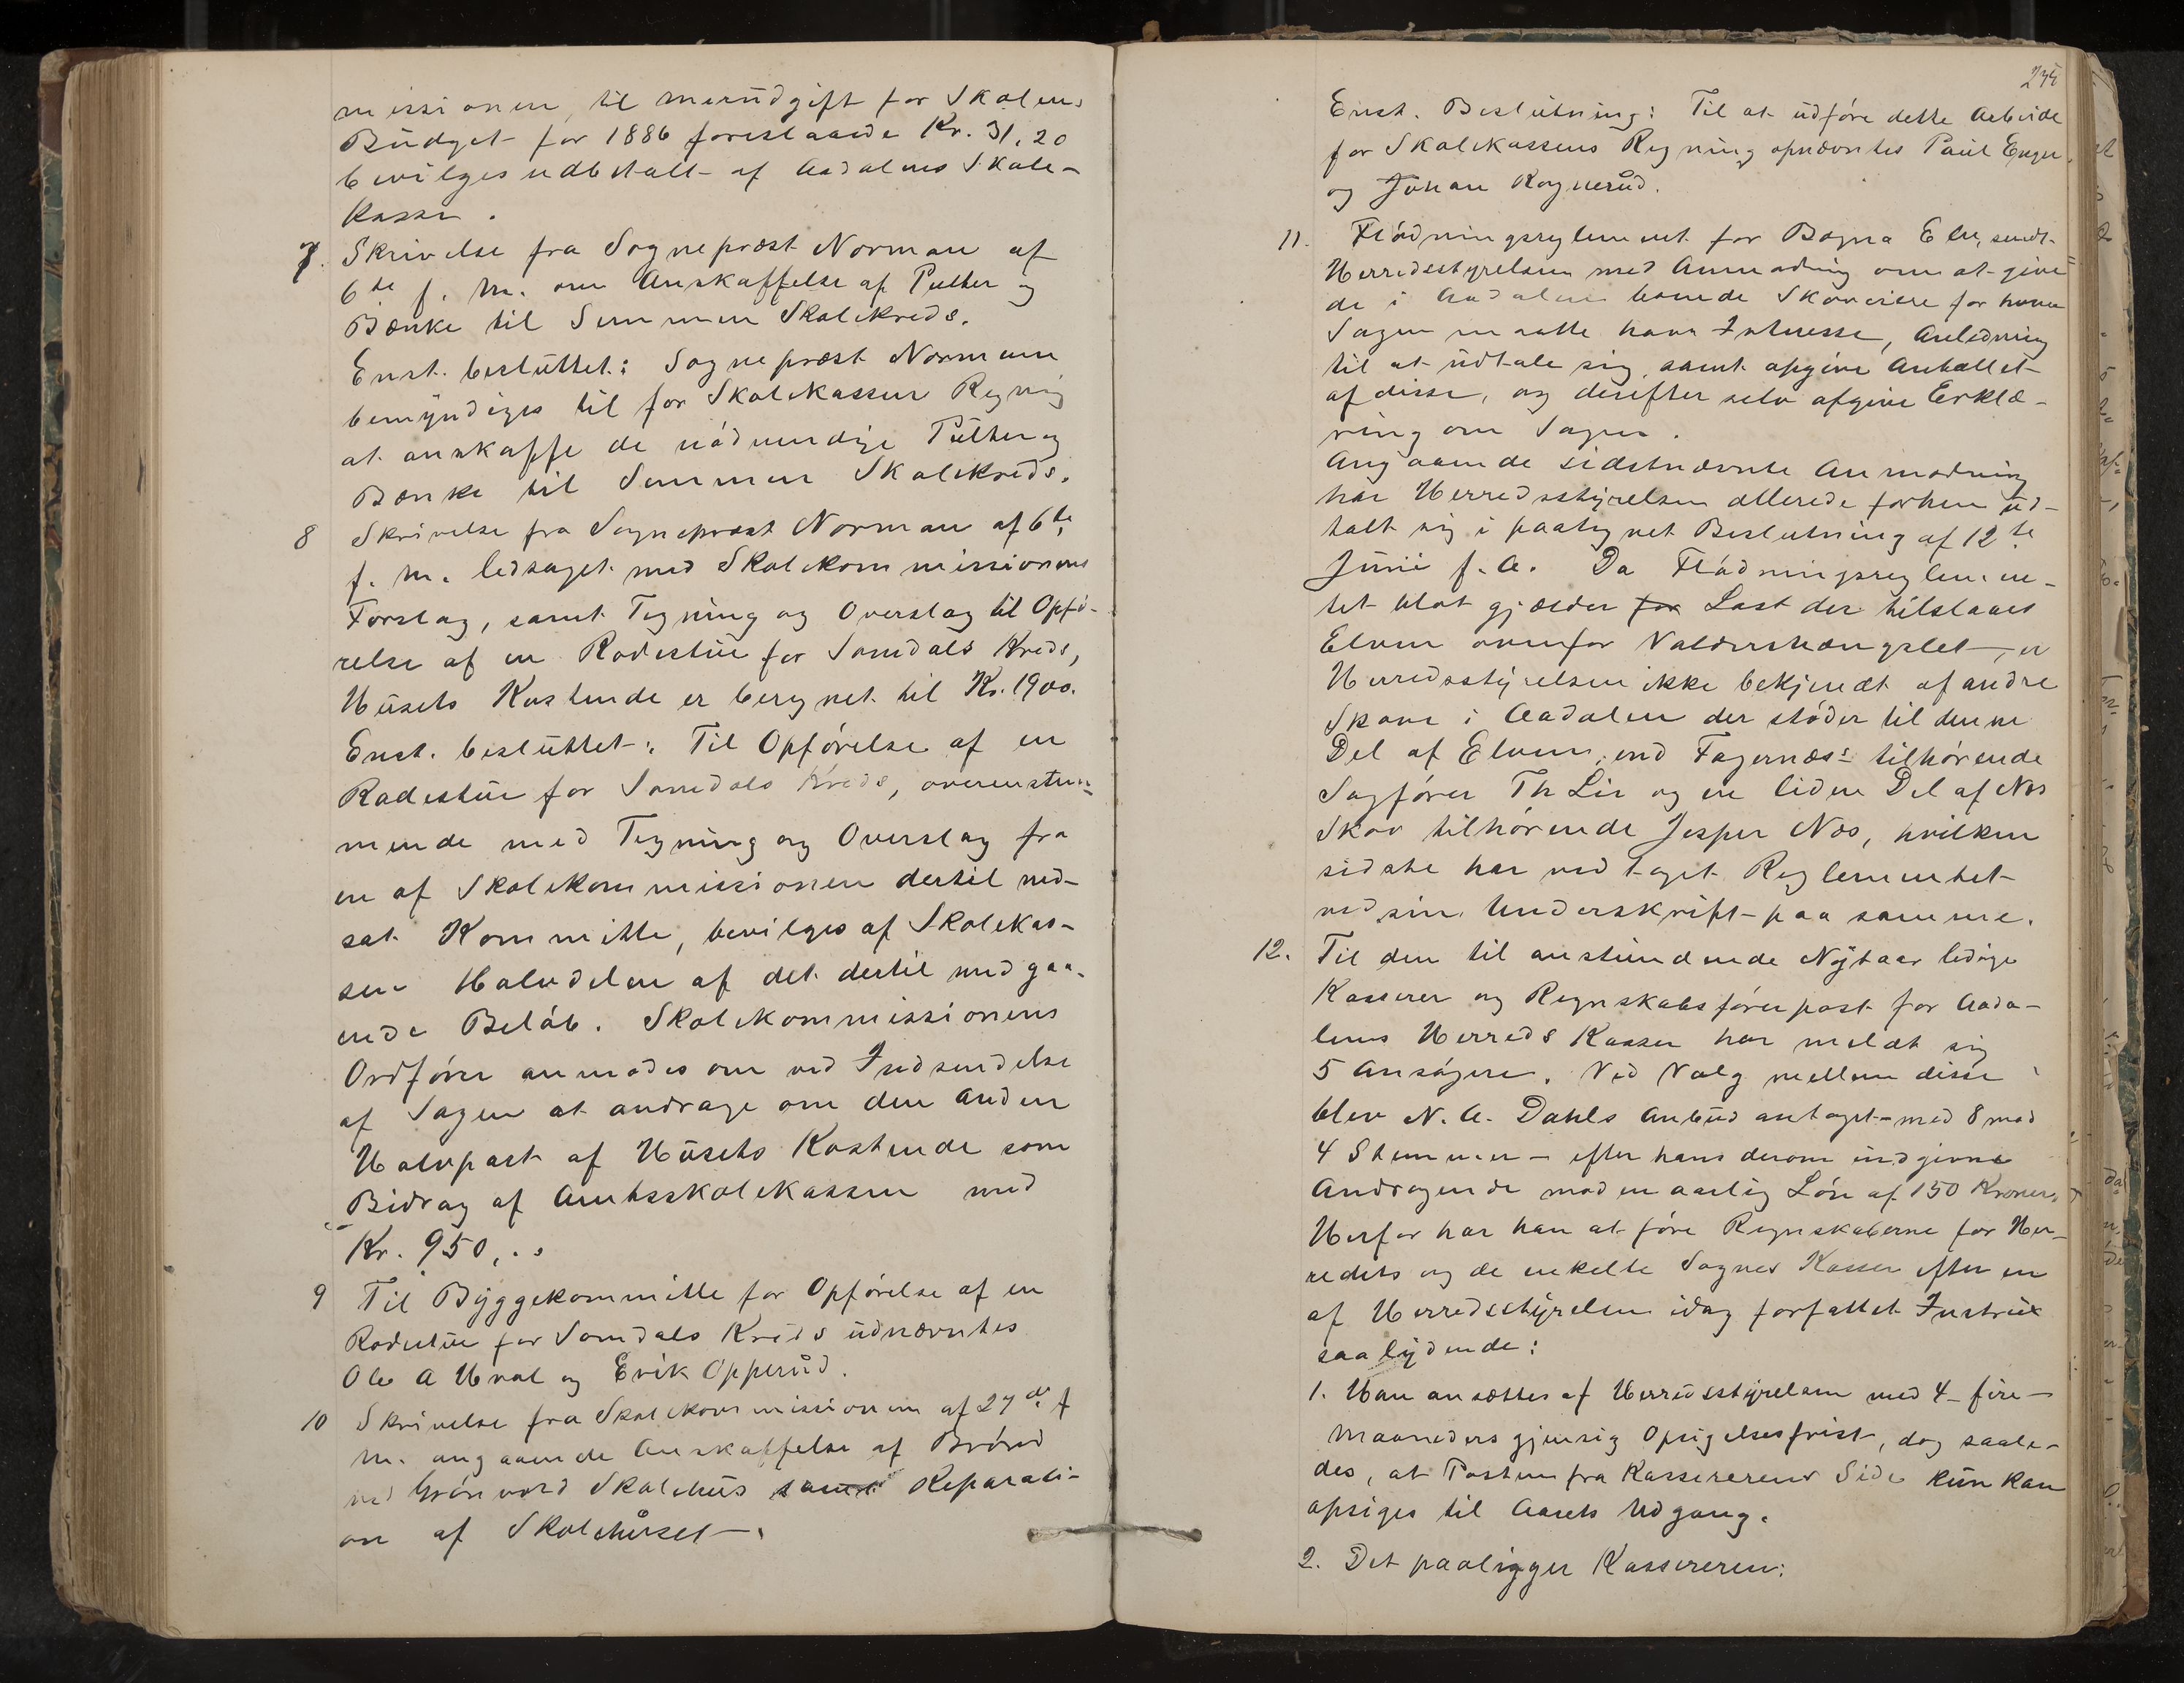 missionen, til merudgift for Skolens
Budget for 1886 foreslaaede Kr. 31,20
bevilges udbetalt af Aadalens Skole-
kasse.
7. Skrivelse fra Sogneprest Norman af
6te f. M. om Anskaffelse af Pulter og
Bænke til Semmen Skolekreds.
Enst. besluttet: Sogneprest Normann
bemyndiges til for Skolekassen Regnig
at anskaffe de nódvendige Pulter og
Bænke til Semmen Skolekreds.
8 Skrivelse fra Sogneprest Norman af 6te
f. M. ledsaget med Skolekommissionens
Forslag, samt Tegning og Overslag til Opfó-
relse af en Rodestue for Somdals Kreds,
Husets Kostende er beregnet til Kr. 1900.
Enst. besluttet: Til Opførelse af en
Rodestue for Somdals Kreds, overenstem-
mende med Tegning og Overslag fra
en af Skolekommissionen dertil ned-
sat Kommitte, bevilges af Skolekas-
sen Halvdelen af det dertil medgaa-
ende Beløb. Skolekommissionens
Ordfører anmodes om ved Indsendelse
af Sagen at andrage om den anden
Halvpart af Husets Kostende som
Bidrag af Amtsskolekassen med
Kr. 950,..
9 Til Byggekommitte for Opførelse af en
Rodestue for Somdals Kreds udnævntes
Ole A Hval og Erik Opperud.
10 Skrivelse fra Skolekommissionen af 27de f
M. angaaende Anskaffelse af Brönd
ved Grönvold Skolehus samt Reparati-
on af Skolehuset.
245
Enst. Beslutning: Til at udföre dette Arbeide
for Skolekassens Regning opnævntes Paul Enger
og Johan Rognerud.
11. Flødningsreglement for Bægna Elv, sendt
Herredsstyrelsen med Anmodning om at give
de i Aadalen boende Skoveiere for hvem
Sagen maatte have Interesse, Anledning
til at udtale sig, samt opgive Antallet
af disse, og derefter selv afgive Erklæ-
ring om Sagen.
Angaaende sidstnævnte Anmodning
har Herredsstyrelsen allerede forhen ud-
talt sig i paategnet Beslutning af 12te
Juni f. A. Da Flødningsreglemen-
tet blot gjælder for Last der tilslaaes
Elven ovenfor Valdershængslet, er
Herredsstyrelsen ikke bekjendt af andre
Skove i Aadalen der støder til denne
Del af Elven, end Fagernæs tilhørende
Sagfører Th Lie og en liden Del af Nes
Skov tilhørende Jesper Nes, hvilken
sidste har vedtaget Reglementet
ved sin Underskrift paa samme.
12. Til den til anstundende Nytaar ledige
Kasserer og Regnskabsførerpost for Aada-
lens Herreds Kasser har meldt sig
5 Ansøgere. Ved Valg mellem disse
blev N. A. Dahls Anbud antaget - med 8 mod
4 Stemmer - efter hans derom indgivne
Andragende mod en aarlig Løn af 150 Kroner.
Herfor har han at føre Regnskaberne for Her-
redets og de enkelte Sognes Kasser efter en
af Herredsstyrelsen idag forfattet Instrux
saalydende:
1. Han ansættes af Herredsstyrelsen med 4 - fire -
Maaneders gjensig Opsigelsesfrist, dog saale-
des, at Posten fra Kassererens Side kun kan
opsiges til Aarets Udgang.
2. Det paaligger Kassereren: